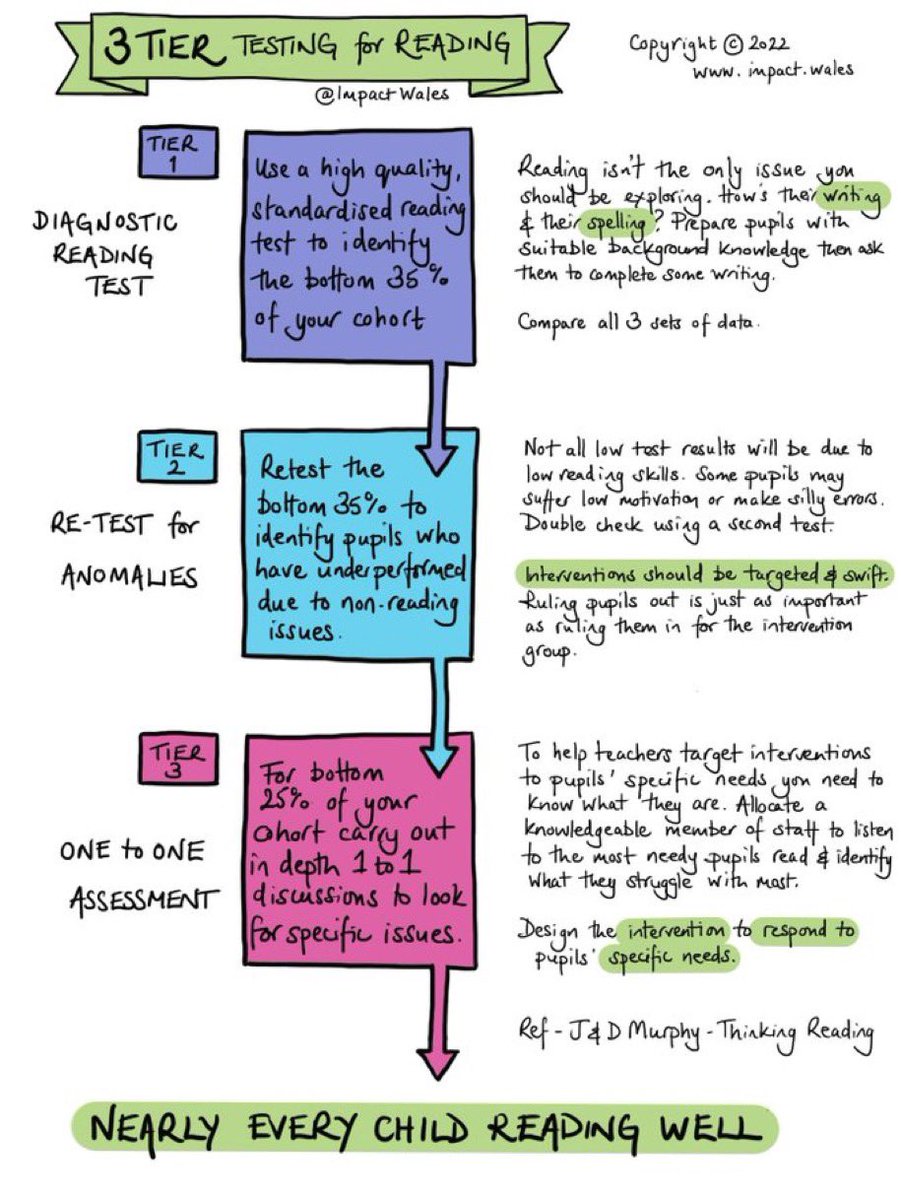 3 TIER TESTING for READING
Copyright © 2022
www.impact.wales
@ImpactWales
TIER
1
DIAGNOSTIC
READING
TEST
Use a high quality,
standardised reading
test to identify
the bottom 35%
of your cohort
Reading isn't the only issue you
should be exploring. How's their writing
& their spelling? Prepare pupils with
suitable background knowledge then ask
them to complete some writing.
Compare all 3 sets of data.
TIER
2
RE-TEST for
ANOMALIES
Retest the
bottom 35% to
identify pupils who
have underperformed
due to non-reading
issues.
Not all low test results will be due to
low reading skills. Some pupils may
suffer low motivation or make silly errors.
Double check using a second test.
Interventions should be targeted & swift.
Ruling pupils out is just as important
as ruling them in for the intervention
group.
TIER
3
ONE to ONE
ASSESSMENT
For bottom
25% of your
cohort carry out
in depth 1 to 1
discussions to look
for specific issues.
To help teachers target interventions
to pupils' specific needs you need to
know what they are. Allocate a
knowledgeable member of staff to listen
to the most needy pupils read & identify
what they struggle with most.
Design the intervention to respond to
pupils' specific needs.
Ref - J & D Murphy - Thinking Reading
NEARLY EVERY CHILD READING WELL